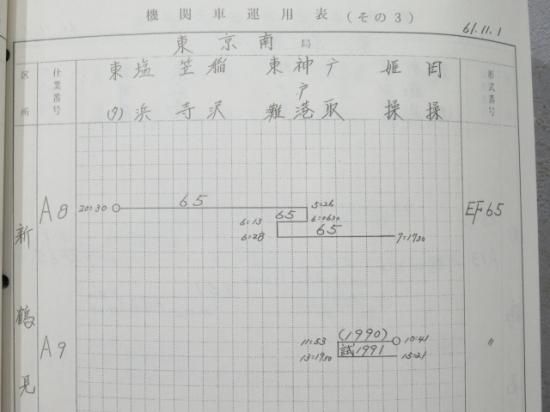 機関車運用表（その３）
61.11.1
東京南局
区所
仕業番号
形式番号
東 塩 笠 稲 東 神戸 广 姫 岡
(タ) 浜 寺 沢 灘 港 取 操 操
新鶴見
A8
20:30
65
5:26
EF65
6:13
65
6:28
65
7:1730
A9
11:53
(1990)
10:41
〃
13:1930
試1991
15:21